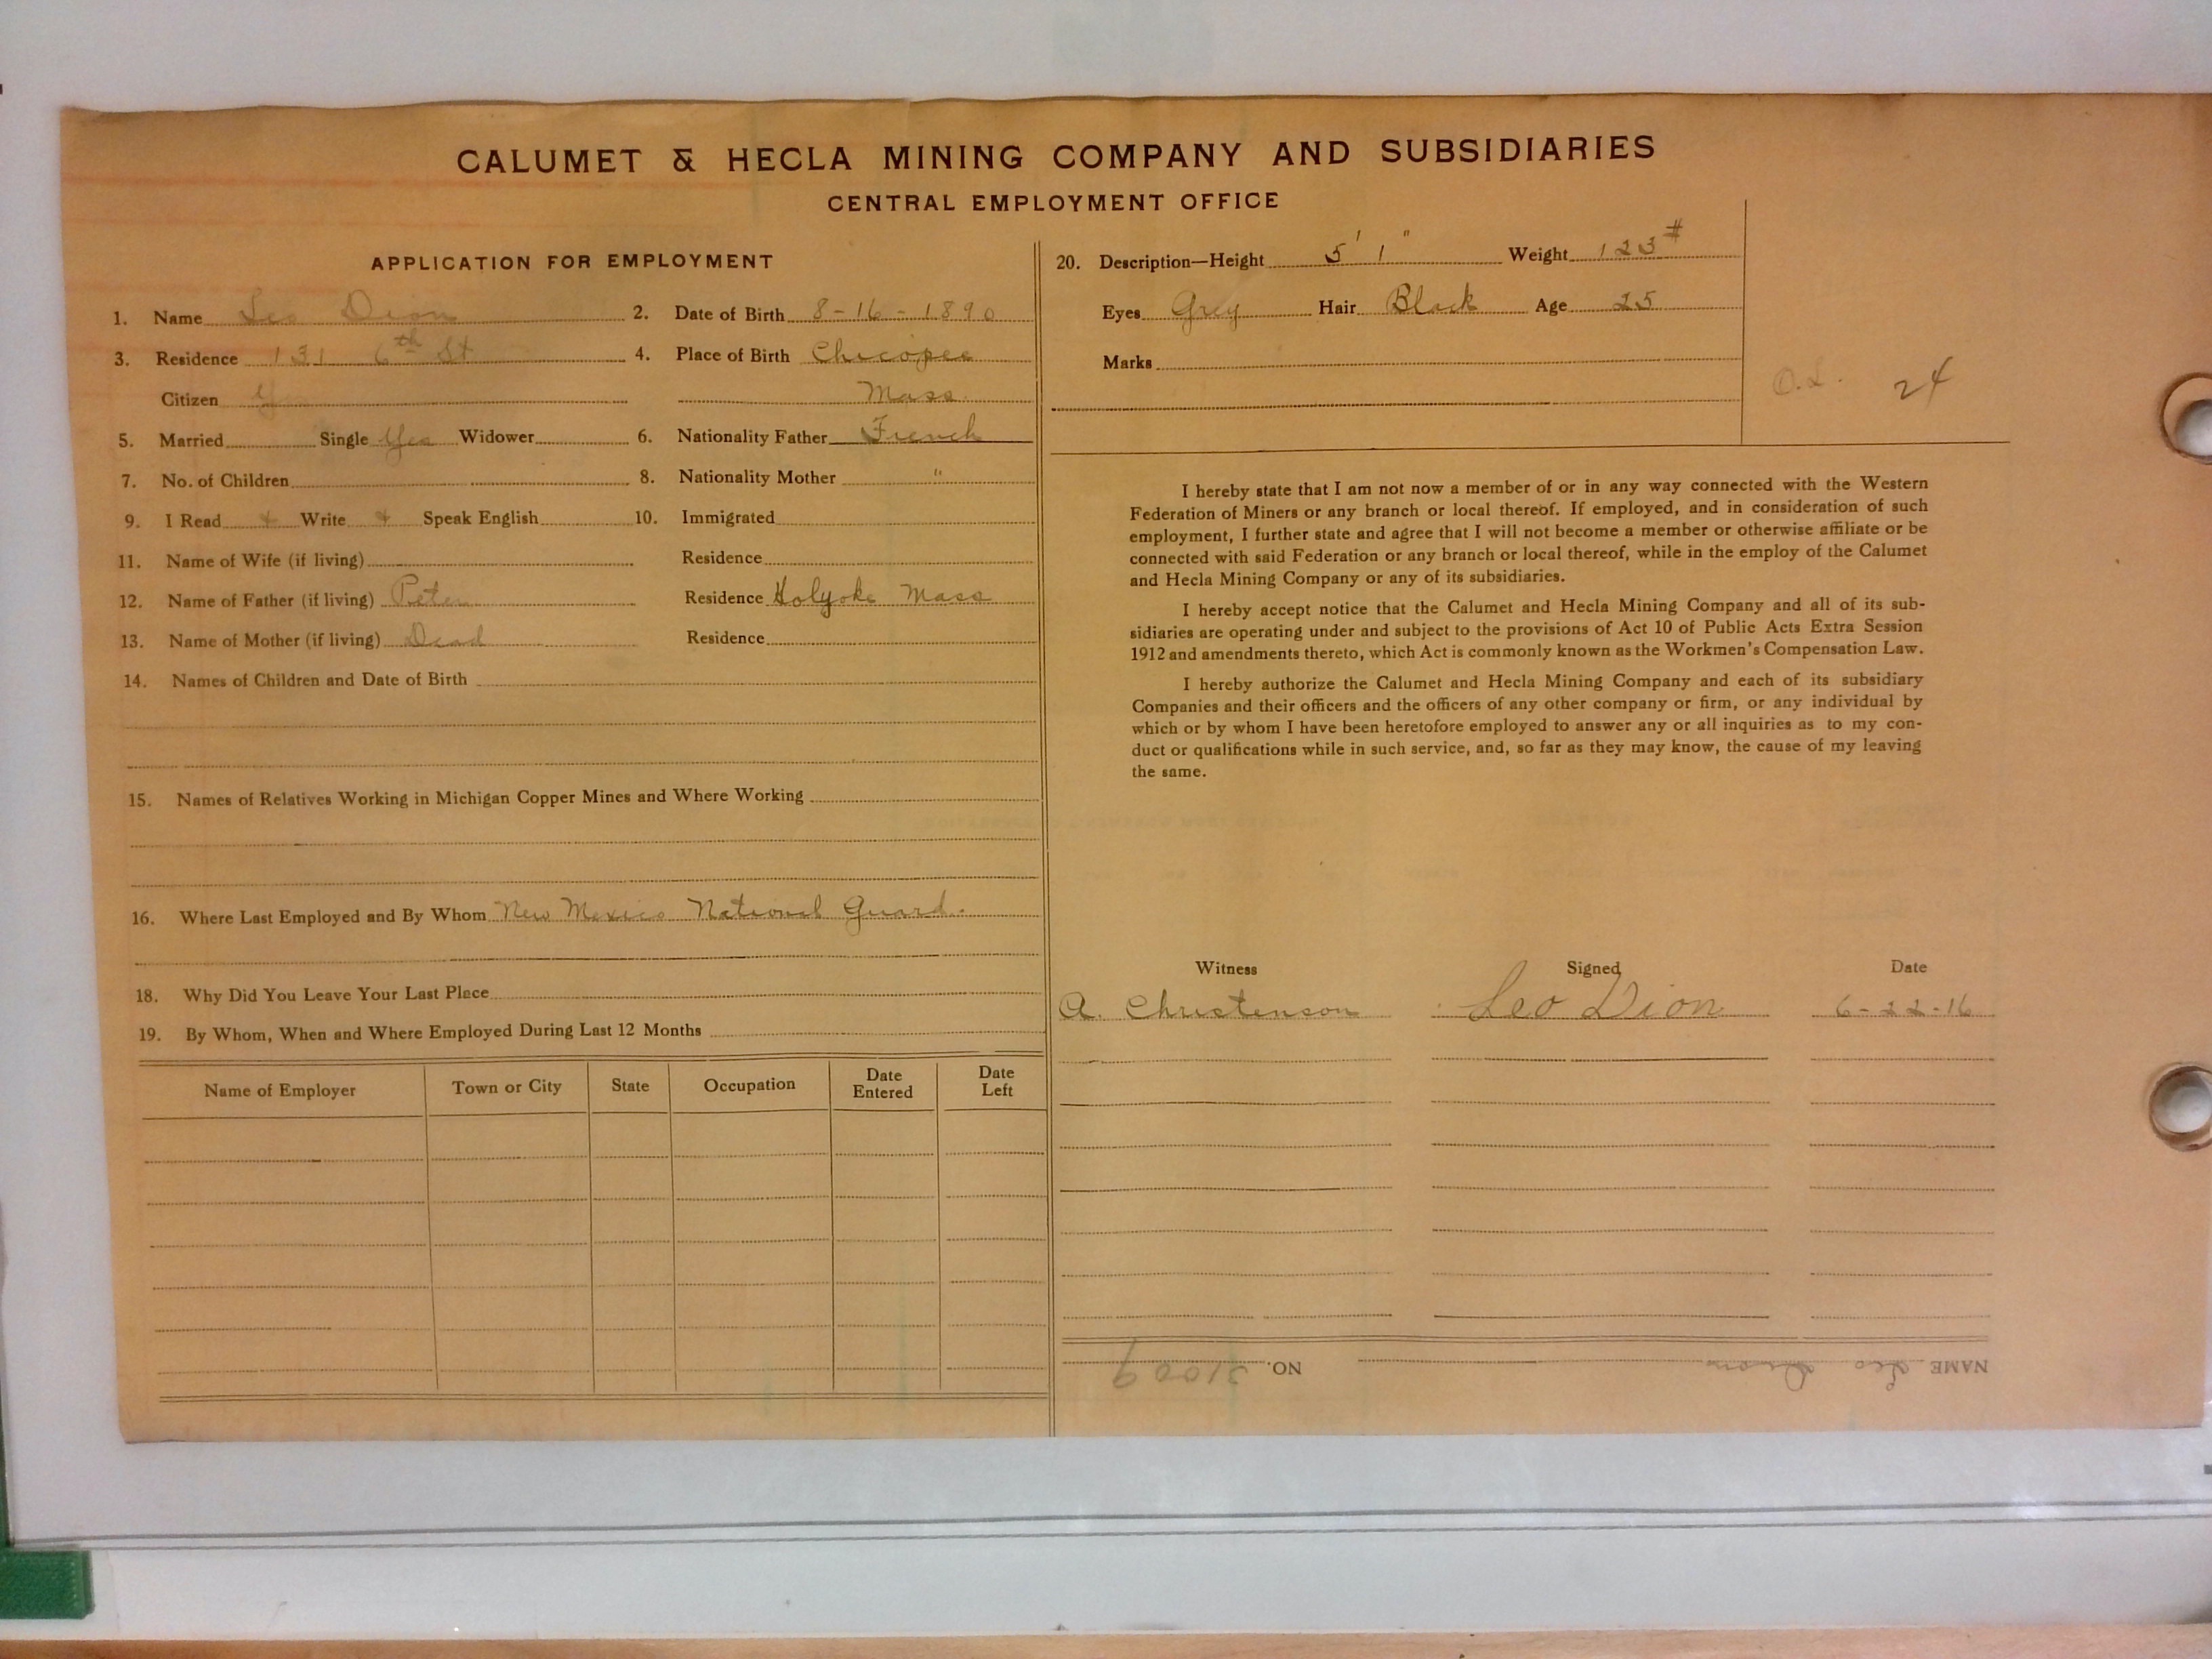 CALUMET & HECLA MINING COMPANY AND SUBSIDIARIES
CENTRAL EMPLOYMENT OFFICE
APPLICATION FOR EMPLOYMENT
1. Name Leo Dion 2. Date of Birth 8-16-1890
3. Residence 131 6th St 4. Place of Birth Chicopee
Citizen Yes Mass.
5. Married Single Yes Widower 6. Nationality Father French
7. No. of Children 8. Nationality Mother "
9. I Read + Write + Speak English 10. Immigrated
11. Name of Wife (if living) Residence
12. Name of Father (if living) Peter Residence Holyoke Mass
13. Name of Mother (if living) Dead Residence
14. Names of Children and Date of Birth
15. Names of Relatives Working in Michigan Copper Mines and Where Working
16. Where Last Employed and By Whom New Mexico National Guard.
18. Why Did You Leave Your Last Place
19. By Whom, When and Where Employed During Last 12 Months
Name of Employer Town or City State Occupation Date Entered Date Left
20. Description—Height 5' 1" Weight 123#
Eyes Grey Hair Black Age 25
Marks
O.L. 24
I hereby state that I am not now a member of or in any way connected with the Western
Federation of Miners or any branch or local thereof. If employed, and in consideration of such
employment, I further state and agree that I will not become a member or otherwise affiliate or be
connected with said Federation or any branch or local thereof, while in the employ of the Calumet
and Hecla Mining Company or any of its subsidiaries.
I hereby accept notice that the Calumet and Hecla Mining Company and all of its sub-
sidiaries are operating under and subject to the provisions of Act 10 of Public Acts Extra Session
1912 and amendments thereto, which Act is commonly known as the Workmen's Compensation Law.
I hereby authorize the Calumet and Hecla Mining Company and each of its subsidiary
Companies and their officers and the officers of any other company or firm, or any individual by
which or by whom I have been heretofore employed to answer any or all inquiries as to my con-
duct or qualifications while in such service, and, so far as they may know, the cause of my leaving
the same.
Witness Signed Date
A. Christenson Leo Dion 6-22-16
NAME Leo Dion NO.